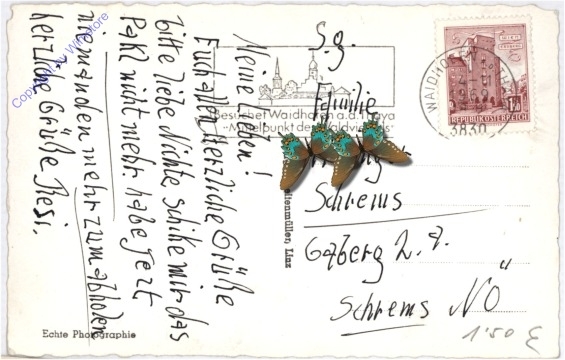 Meine Lieben!
Euch allen herzliche Grüße
bitte liebe Nichte schike mir das
Pakl nicht mehr. habe jezt
niemanden mehr zum abholen
herzliche Grüße Resi.
Copyright by Winstore
Echte Photographie
Besuchet Waidhofen a.d. Thaya
"Mittelpunkt des Waldviertels"
WAIDHOFEN
3830
REPUBLIK ÖSTERREICH
1.80
S.g.
Familie
Schrems
Gaberg
Schrems NÖ
1'50 €